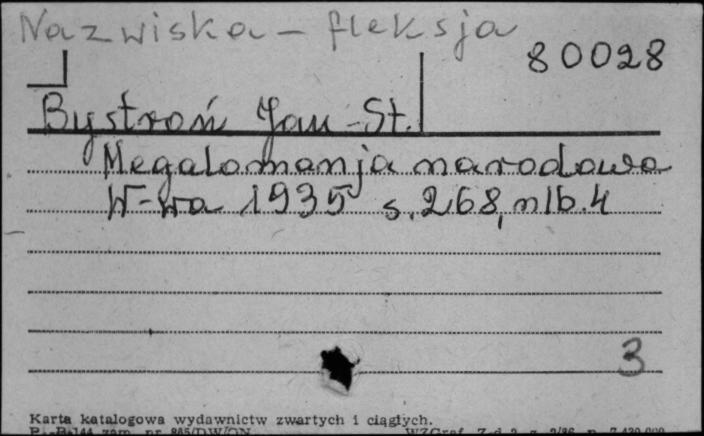 Nazwiska – fleksja
80028
Bystroń Jan St.
Megalomanja narodowa
W-wa 1935 s. 268, nlb. 4
3
Karta katalogowa wydawnictw zwartych i ciągłych.